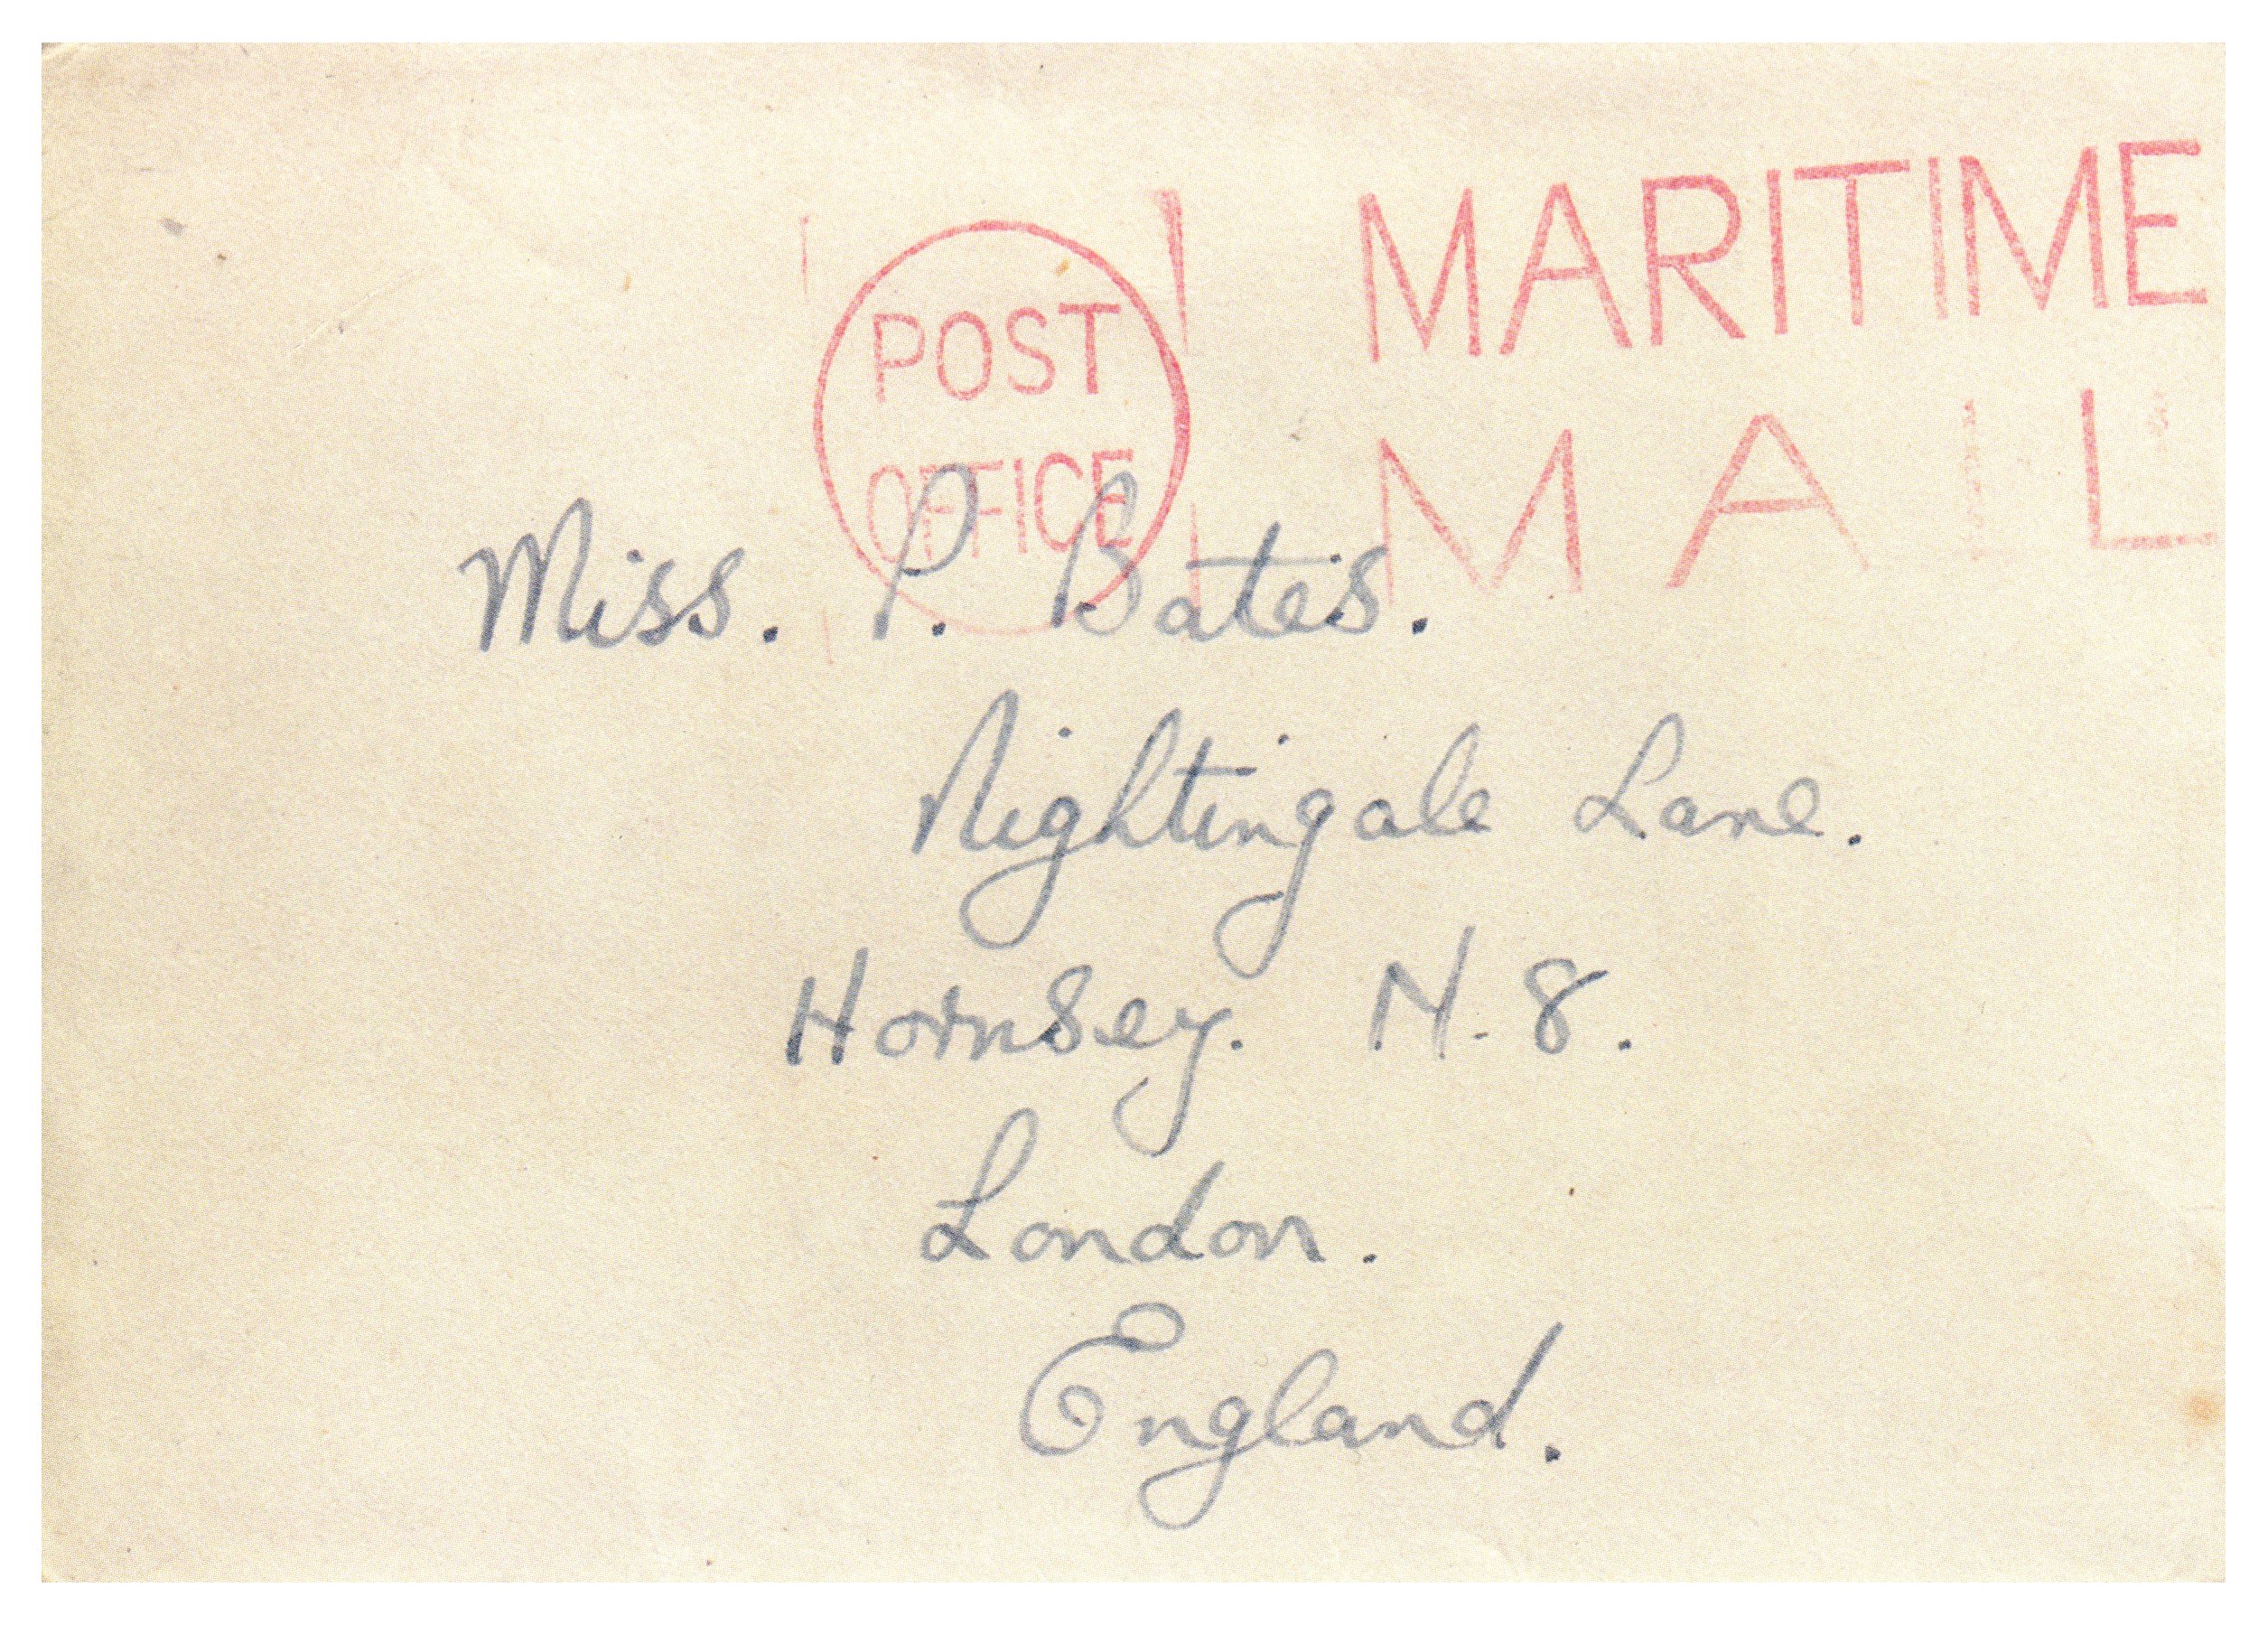 POST
OFFICE
MARITIME
MAIL
Miss. P. Bates.
Nightingale Lane.
Hornsey. N. 8.
London.
England.